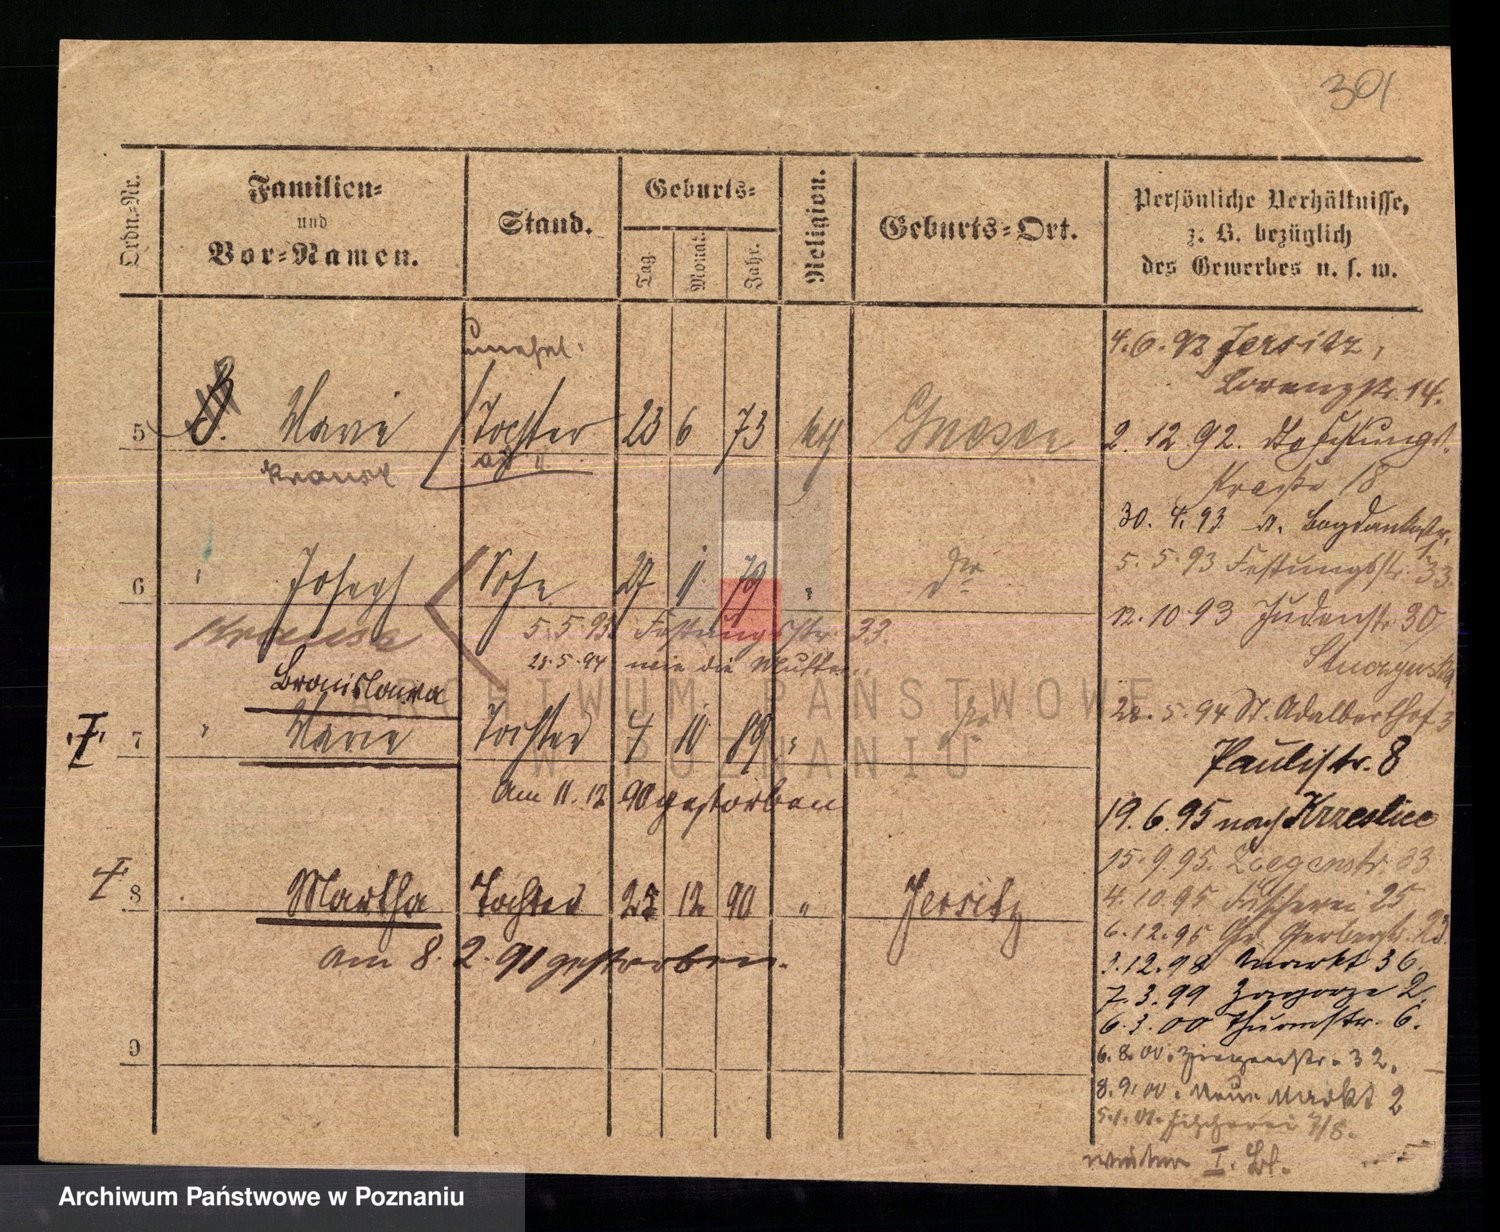 301
Ordn.-Nr.
Familien-
und
Vor-Namen.
Stand.
Geburts-
Tag.
Monat.
Jahr.
Religion.
Geburts-Ort.
Persönliche Verhältnisse,
z. B. bezüglich
des Gewerbes u. s. w.
unehel.
5 Marie Tochter 23 6 73 kth Gnesen
6 Joseph Sohn 27 11 79 " do
Krause
5.5.93. Festungsstr. 33.
28.5.94 wie die Mutter
Bronislawa
7 " Marie Tochter 4 10 89 "
am 11.12 90 gestorben
8 Martha Tochter 12 90 " Jersitz
am 8. 2. 91 gestorben.
9
4.6.92 Jersitz,
Lorenzstr. 14.
2. 12. 92. Festungs
straße 18
30. 4. 93 Bogdankastr.
5. 5. 93 Festungsstr. 33.
12. 10. 93 Judenstr. 30
28. 5. 94 St. Adalberthof 3
Paulistr. 8
19. 6. 95 nach Krzeslice
15. 9. 95. Ziegenstr. 23
4. 10. 95 Fischerei 25
6. 12. 95 Gr. Gerberstr. 23.
3. 12. 98 Markt 36
7. 3. 99 Zagorze 2.
6. 3. 00 Thurmstr. 6.
6. 8. 00. Ziegenstr. 32.
8. 9. 00. Neuer Markt 2
5. 1. 01. Fischerei 7/8.
weiter I. Bl.
ARCHIWUM PAŃSTWOWE
W POZNANIU
Archiwum Państwowe w Poznaniu